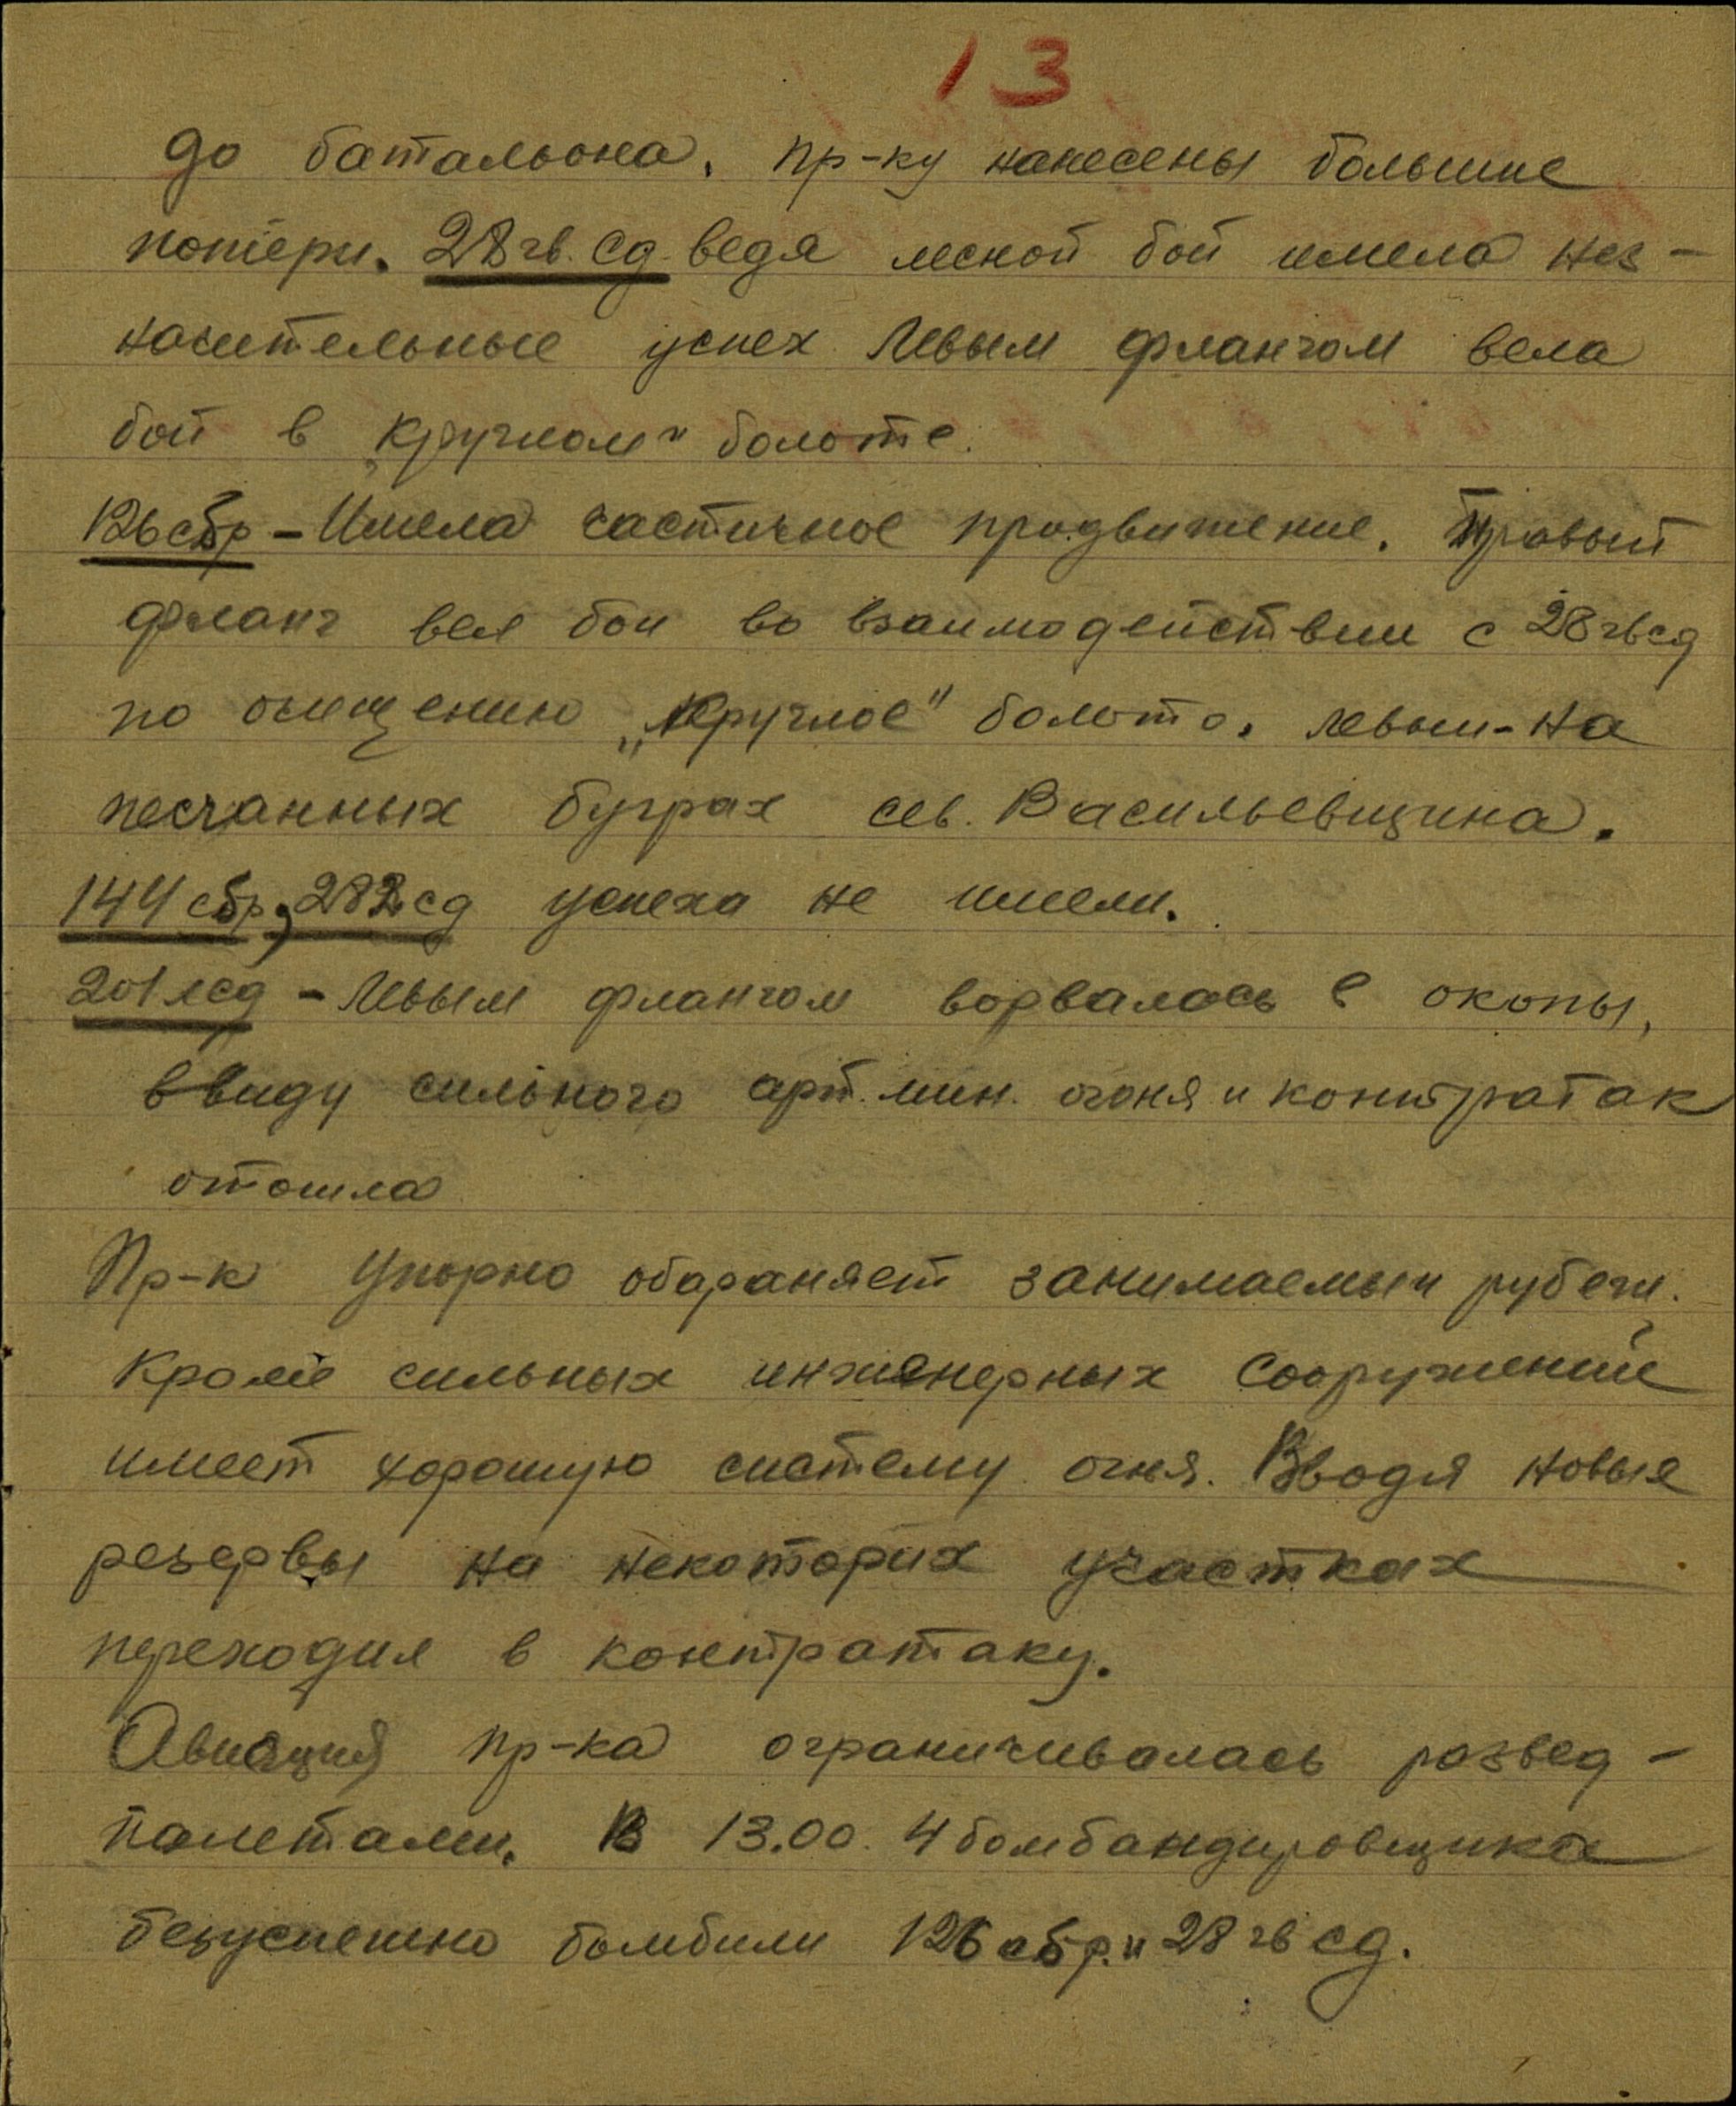 13
до батальона. Пр-ку нанесены большие
потери. 28 гв. сд. ведя лесной бой имела нез-
начительные успех Левым флангом вела
бой в „Круглом" болоте.
126 сбр - Имела частичное продвижение. Правый
фланг вел бои во взаимодействии с 28 гв сд
по очищению „Круглое" болото. левый - на
песчанных буграх сев. Васильевщина.
144 сбр, 282 сд успеха не имели.
201 лсд - Левым флангом ворвалась в окопы,
ввиду сильного арт. мин. огоня и контратак
отошла
Пр-к Упорно обараняет занимаемый рубеж.
Кроме сильных инженерных сооружений
имеет хорошую систему огня. Вводя новые
резервы на некоторих участках
переходил в контратаку.
Авиация пр-ка ограничивалась развед-
полетами. В 13.00. 4 бомбандировщика
безуспешно бомбили 126 сбр. и 28 гв сд.